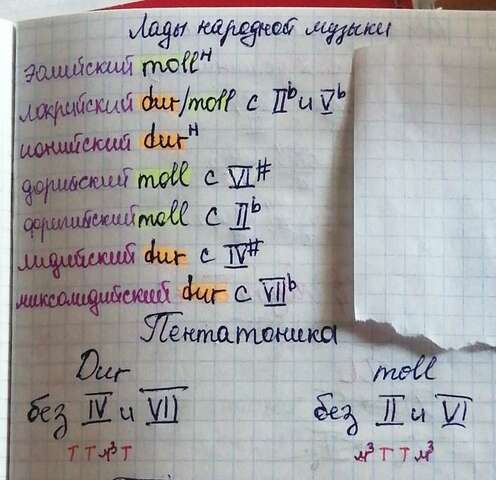 Лады народной музыки
эолийский moll ᴴ
локрийский dur/moll с II♭ и V♭
ионийский dur ᴴ
дорийский moll с VI#
фригийский moll с II♭
лидийский dur с IV#
миксолидийский dur с VII♭
Пентатоника
Dur moll
без IV и VII без II и VI
т т м³ т м³ т т м³